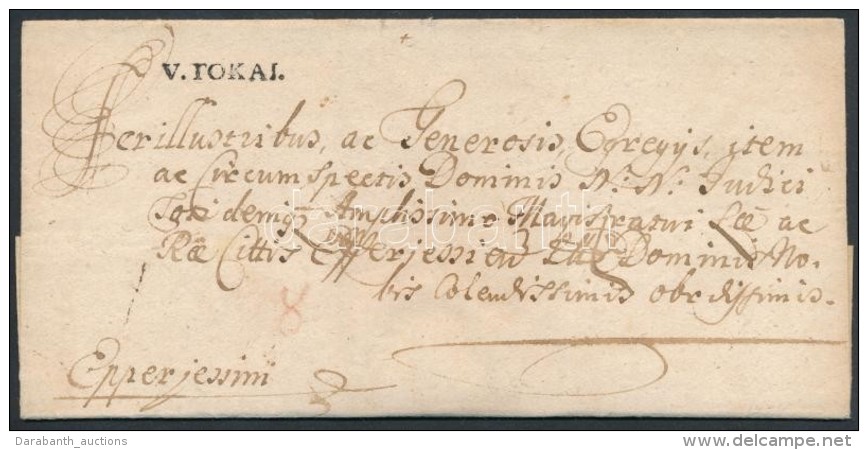 V. TOKAI.
Perillustribus, ac Generosis, Egregijs, item
ac Circumspectis Dominis N. N. Judici
Toti demiq Amplissimo Magistratui Læ ac
Ræ Cittis Epperjessien Dominis No-
bis Colendissimis obrdssimis.
8
Epperjessini
darabanth
Darabanth_auctions
delcampe.net